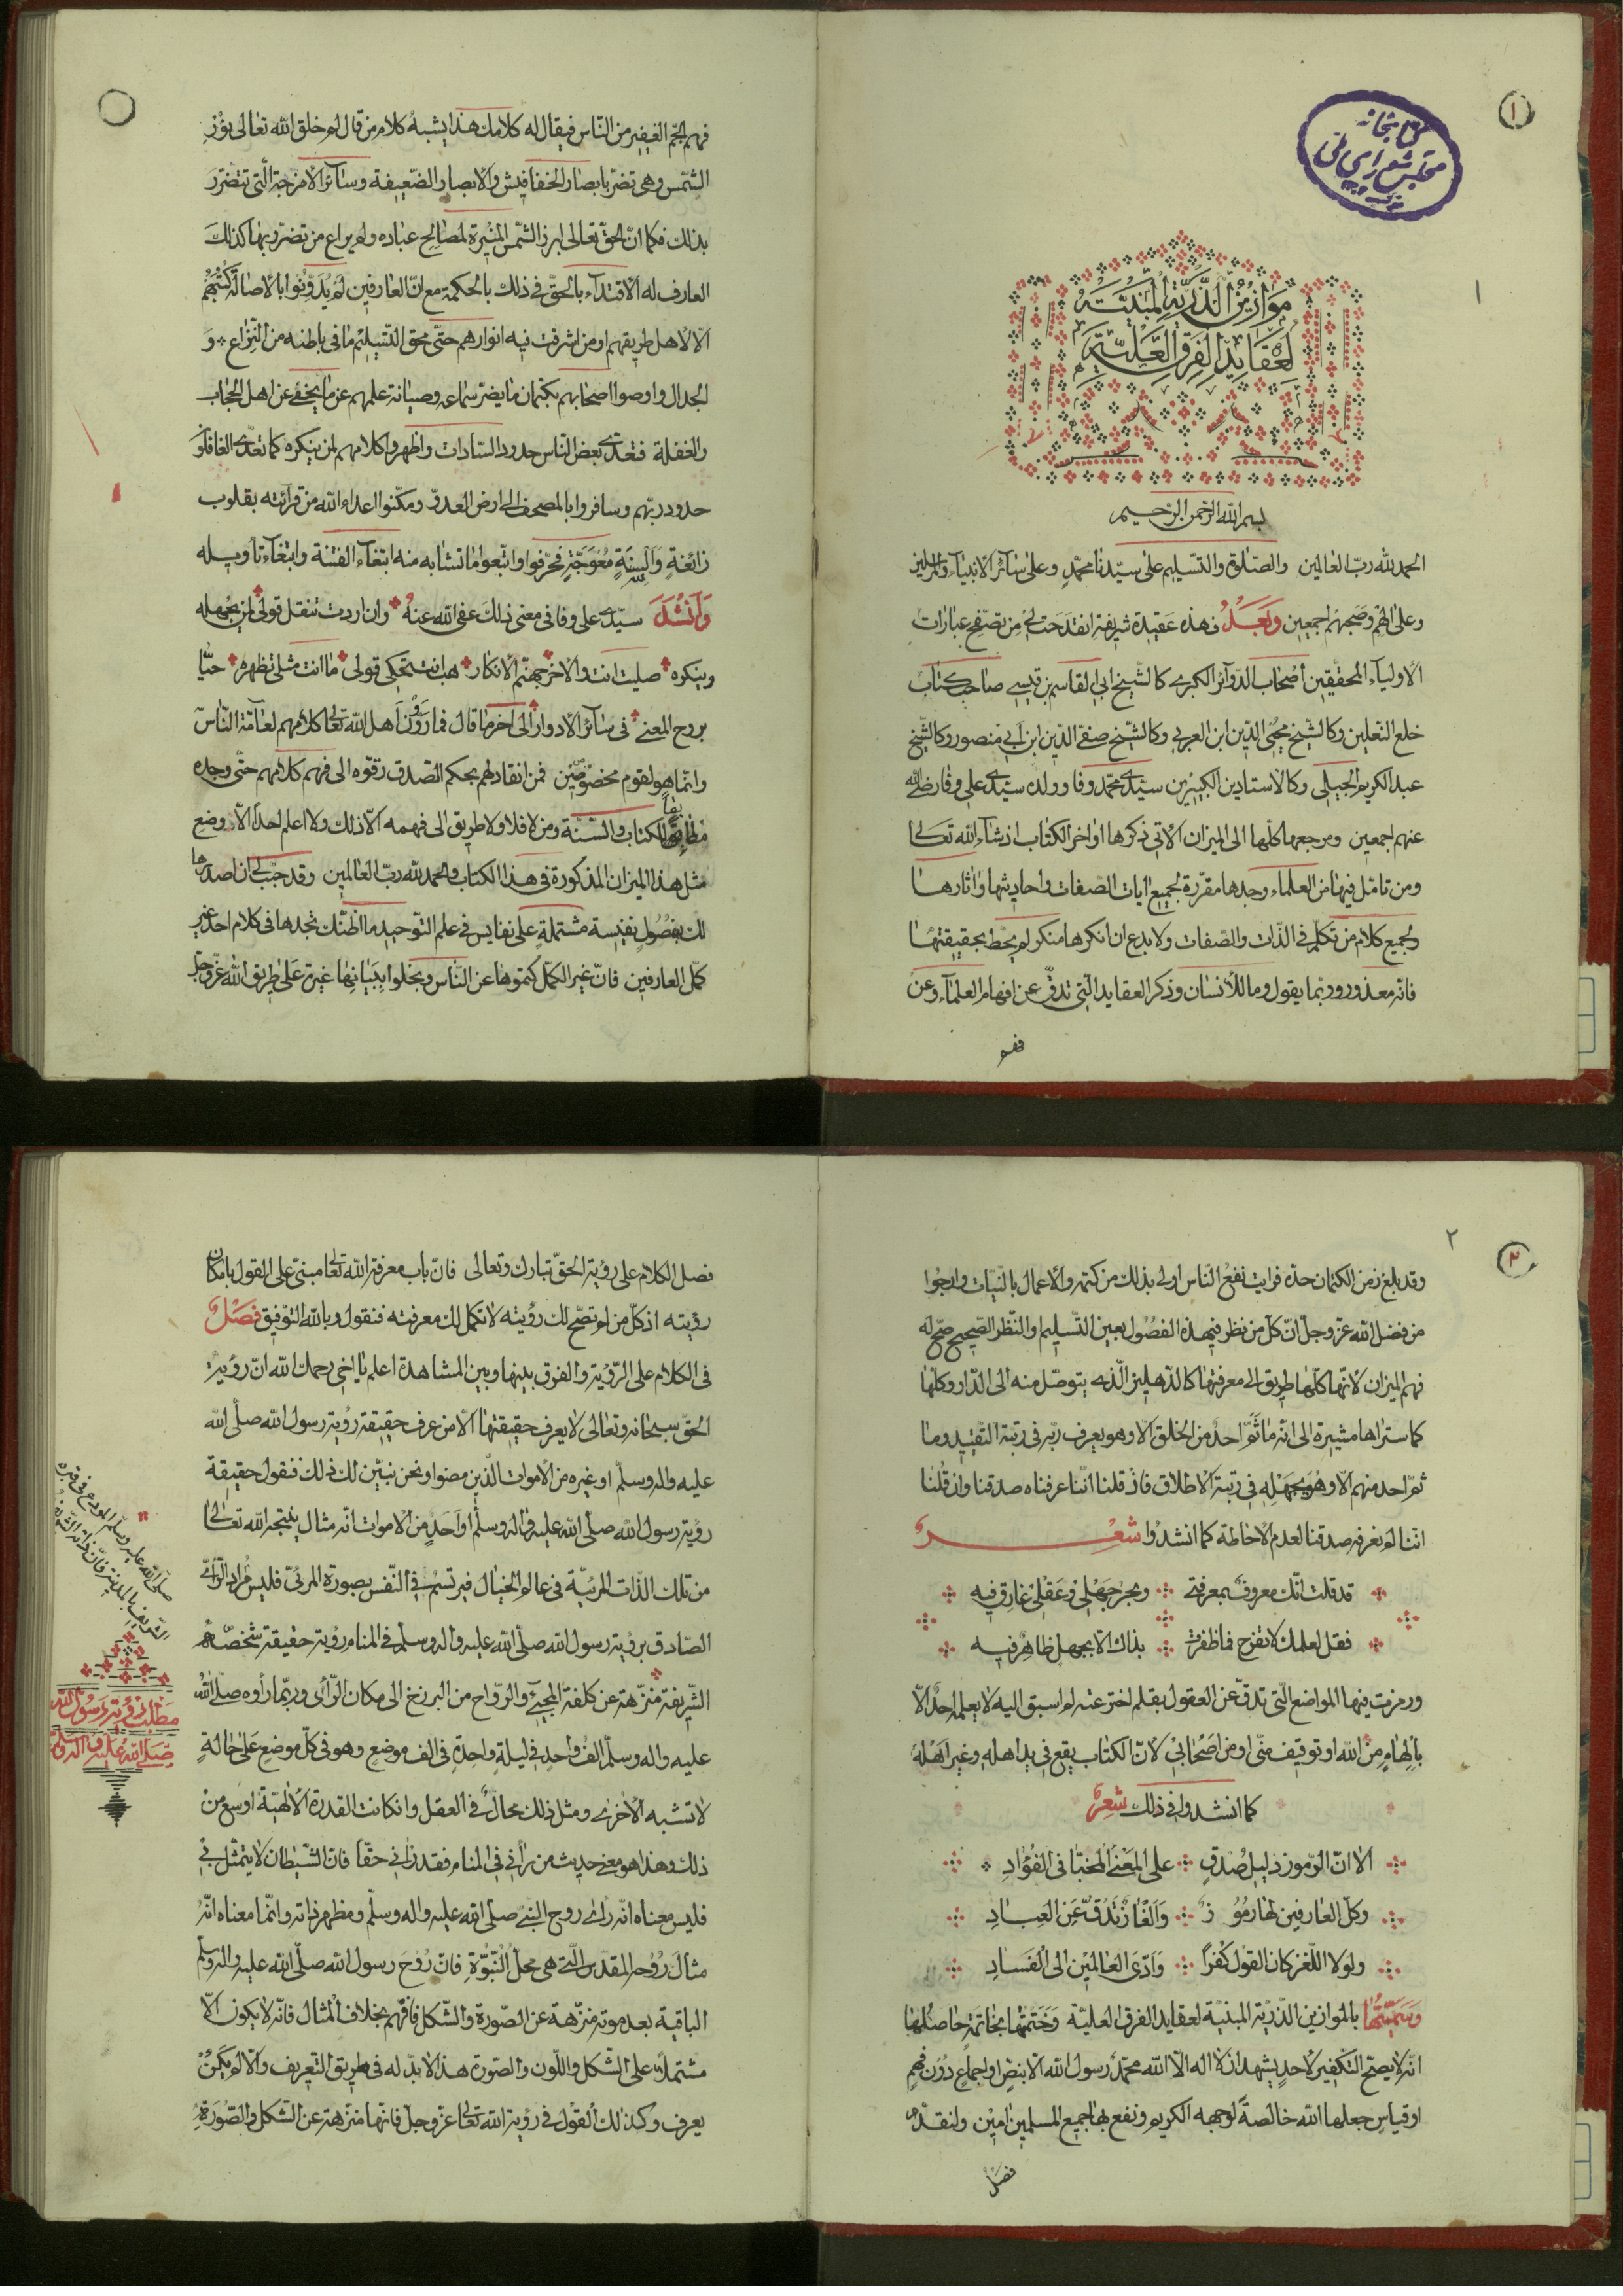 ١
كتابخانه
مجلس شورای ملی
١
موازين الذرية المبينة
لعقايد الفرق العلية
بسم الله الرحمن الرحيم
الحمد لله رب العالمين والصلوة والتسليم على سيدنا محمد وعلى سائر الانبياء والمرسلين
وعلى الهم وصحبهم اجمعين وبعد فهذه عقيدة شريفة انقدحت لى من تصفح عبارات
الاولياء المحققين اصحاب الدوائر الكبرى كالشيخ ابى القاسم بن قيسى صاحب كتاب
خلع النعلين وكالشيخ محيى الدين ابن العربى وكالشيخ صفى الدين ابن ابى منصور وكالشيخ
عبد الكريم الجيلى وكالاستادين الكبيرين سيدى محمد وفا وولده سيدى على وفا رضى الله
عنهم اجمعين ومرجعها كلها الى الميزان الاتى ذكرها اواخر الكتاب ان شاء الله تعالى
ومن تامل فيها من العلماء وجدها مقررة لجميع ايات الصفات واحاديثها واثارها
ولجميع كلام من تكلم فى الذات والصفات ولا بدع ان انكرها منكر لم يحط بحقيقتها
فانه معذور وربما يقول وما للانسان وذكر العقايد التى تدق عن افهام العلماء وعن
فهم
فهم الجم الغفير من الناس فيقال له كلامك هذا يشبه كلام من قال لم خلق الله تعالى نور
الشمس وهى تضر بابصار الخفافيش والابصار الضعيفة وسائر الامزجة التى تتضرر
بذلك فكما ان الحق تعالى ابرز الشمس المنيرة لمصالح عباده ولم يراع من تضرر بها كذلك
العارف له الاقتداء بالحق فى ذلك بالحكمة مع ان العارفين لم يدونوا بالاصالة كتبهم
الا لاهل طريقهم او من اشرقت فيه انوارهم حتى محق التسليم ما فى باطنه من النزاع و
الجدال واوصوا اصحابهم بكتمان ما يضر سماعه وصيانة علمهم عن ما يخفى عن اهل الحجاب
والغفلة فتعدى بعض الناس حدود السادات واظهروا كلامهم لمن ينكره كما تعدى الغافلون
حدود ربهم وسافروا بالمصحف الى ارض العدو ومكنوا اعداء الله من قرائته بقلوب
زائغة والسنة معوجة فحرفوا واتبعوا ما تشابه منه ابتغاء الفتنة وابتغاء تاويله
وانشد سيدى على وفا فى معنى ذلك عفى الله عنه وان اردت تنقل قولى لمن يجهله
وينكره صليت انت والاخر جهنم الانكار هب انت تحكى قولى ما انت مثلى تظهر حيا
بروح المعنى فى سائر الادوار الى اخر ما قال فما روون اهل الله تعالى كلامهم لعامة الناس
وانما هو لقوم مخصوصين فمن انقاد لهم بحكم الصدق رقوه الى فهم كلامهم حتى وجده
مطابقا للكتاب والسنة ومن لا فلا ولا طريق الى فهمه الا ذلك ولا اعلم احدا الا وضع
مثل هذا الميزان المذكورة فى هذا الكتاب والحمد لله رب العالمين وقد حبب لى ان اصدرها
لك بفصول نفيسة مشتملة على نفايس فى علم التوحيد ما اظنك تجدها فى كلام احد غير
كمل العارفين فان غير الكمل كتموها عن الناس وبخلوا ببيانها غيرة على طريق الله عز وجل
٢
٢
وقد بلغ زمن الكتمان حده فرايت نفع الناس اولى بذلك من كتمه والاعمال بالنيات وارجوا
من فضل الله عز وجل ان كل من نظر فى هذه الفصول بعين التسليم والنظر الصحيح صح له
فهم الميزان لانها كلها طريق الى معرفتها كالدهليز الذى يتوصل منه الى الدار وكلها
كما ستراها مشيرة الى انه ما ثم احد من الخلق الا وهو يعرف ربه فى رتبة التقييد وما
ثم احد منهم الا وهو يجهله فى رتبة الاطلاق فان قلنا اننا عرفناه صدقنا وان قلنا
اننا لم نعرفه صدقنا لعدم الاحاطة كما انشدوا شعر
قد قلت انك معروف بمعرفتى وبحر جهلى وعقلى غارق فيه
فقل لعلمك لا تفرح فما ظفرت بذاك الا بجهل ظاهر فيه
ورمزت فيها المواضع التى تدق عن العقول بقلم اخترعته لم اسبق اليه لا يعلمه احد الا
بالهام من الله او توقيف منى او من اصحابى لان الكتاب يقع فى يد اهله وغير اهله
كما انشدوا فى ذلك شعر
الا ان الرموز دليل صدق على المعنى المخبا فى الفؤاد
وكل العارفين لها رموز والغاز تدق عن العباد
ولولا اللغز كان القول كفرا وادى العالمين الى الفساد
وسميتها بالموازين الذرية المبنية لعقايد الفرق العلية وختمتها بخاتمة حاصلها
انه لا يصح التكفير لاحد يشهد ان لا اله الا الله محمد رسول الله الا بنص او اجماع دون فهم
او قياس جعلها الله خالصة لوجهه الكريم ونفع بها جميع المسلمين امين ولنقدم
فصل
فصل الكلام على رؤية الحق تبارك وتعالى فان باب معرفة الله تعالى مبنى على القول بامكان
رؤيته اذ كل من لم تصح لك رؤيته لا تكمل لك معرفته فنقول وبالله التوفيق فصل
فى الكلام على الرؤية والفرق بينها وبين المشاهدة اعلم يا اخى رحمك الله ان رؤية
الحق سبحانه وتعالى لا يعرف حقيقتها الا من عرف حقيقة رؤية رسول الله صلى الله
عليه واله وسلم او غيره من الاموات الذين مضوا ونحن نبين لك ذلك فنقول حقيقة
رؤية رسول الله صلى الله عليه واله وسلم او احد من الاموات انه مثال ينتجه الله تعالى
من تلك الذات المرئية فى عالم الخيال فيرتسم فى النفس بصورة المرئى فليس مراد الرائى
الصادق برؤية رسول الله صلى الله عليه واله وسلم فى المنام رؤية حقيقة شخصه
الشريفة منزهة عن كلفة المجيئ والرواح من البرزخ الى مكان الرائى وربما رأوه صلى الله
عليه واله وسلم الف واحد فى ليلة واحدة فى الف موضع وهو فى كل موضع على حالة
لا تشبه الاخرى ومثل ذلك محال فى العقل وان كانت القدرة الالهية اوسع من
ذلك وهذا هو معنى حديث من رانى فى المنام فقد رانى حقا فان الشيطان لا يتمثل بى
فليس معناه انه راى روح النبى صلى الله عليه واله وسلم ومظهر ذاته وانما معناه انه
مثال روحه المقدس التى هى محل النبوة فان روح رسول الله صلى الله عليه واله وسلم
الباقية بعد موته منزهة عن الصورة والشكل فافهم بخلاف المثال فانه لا يكون الا
مشتملا على الشكل واللون والصورة هذا لا بد له فى طريق التعريف والا لم يكن
يعرف وكذلك القول فى رؤية الله تعالى عز وجل فانها منزهة عن الشكل والصورة
صلى الله عليه وسلم المودع فى قبره
الشريف بالمدينة فان ذاته
مطلب فى رؤية رسول الله
صلى الله عليه واله وسلم